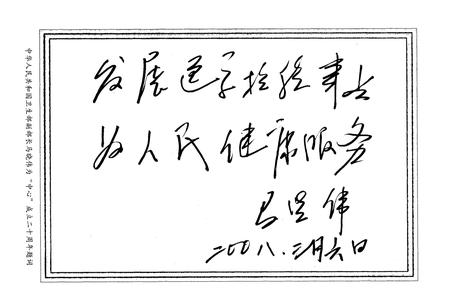 中华人民共和国卫生部副部长马晓伟为“中心”成立二十周年题词
发展医学检验事业
为人民健康服务
马晓伟
二〇〇八.三月六日